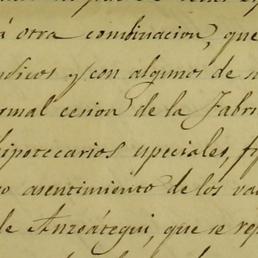 á otra combinacion, que
y con algunos de s
rmal cesion de la Fabri
hipotecarios especiales, f
asentimiento de los va
de Anzoátegui, que se rep